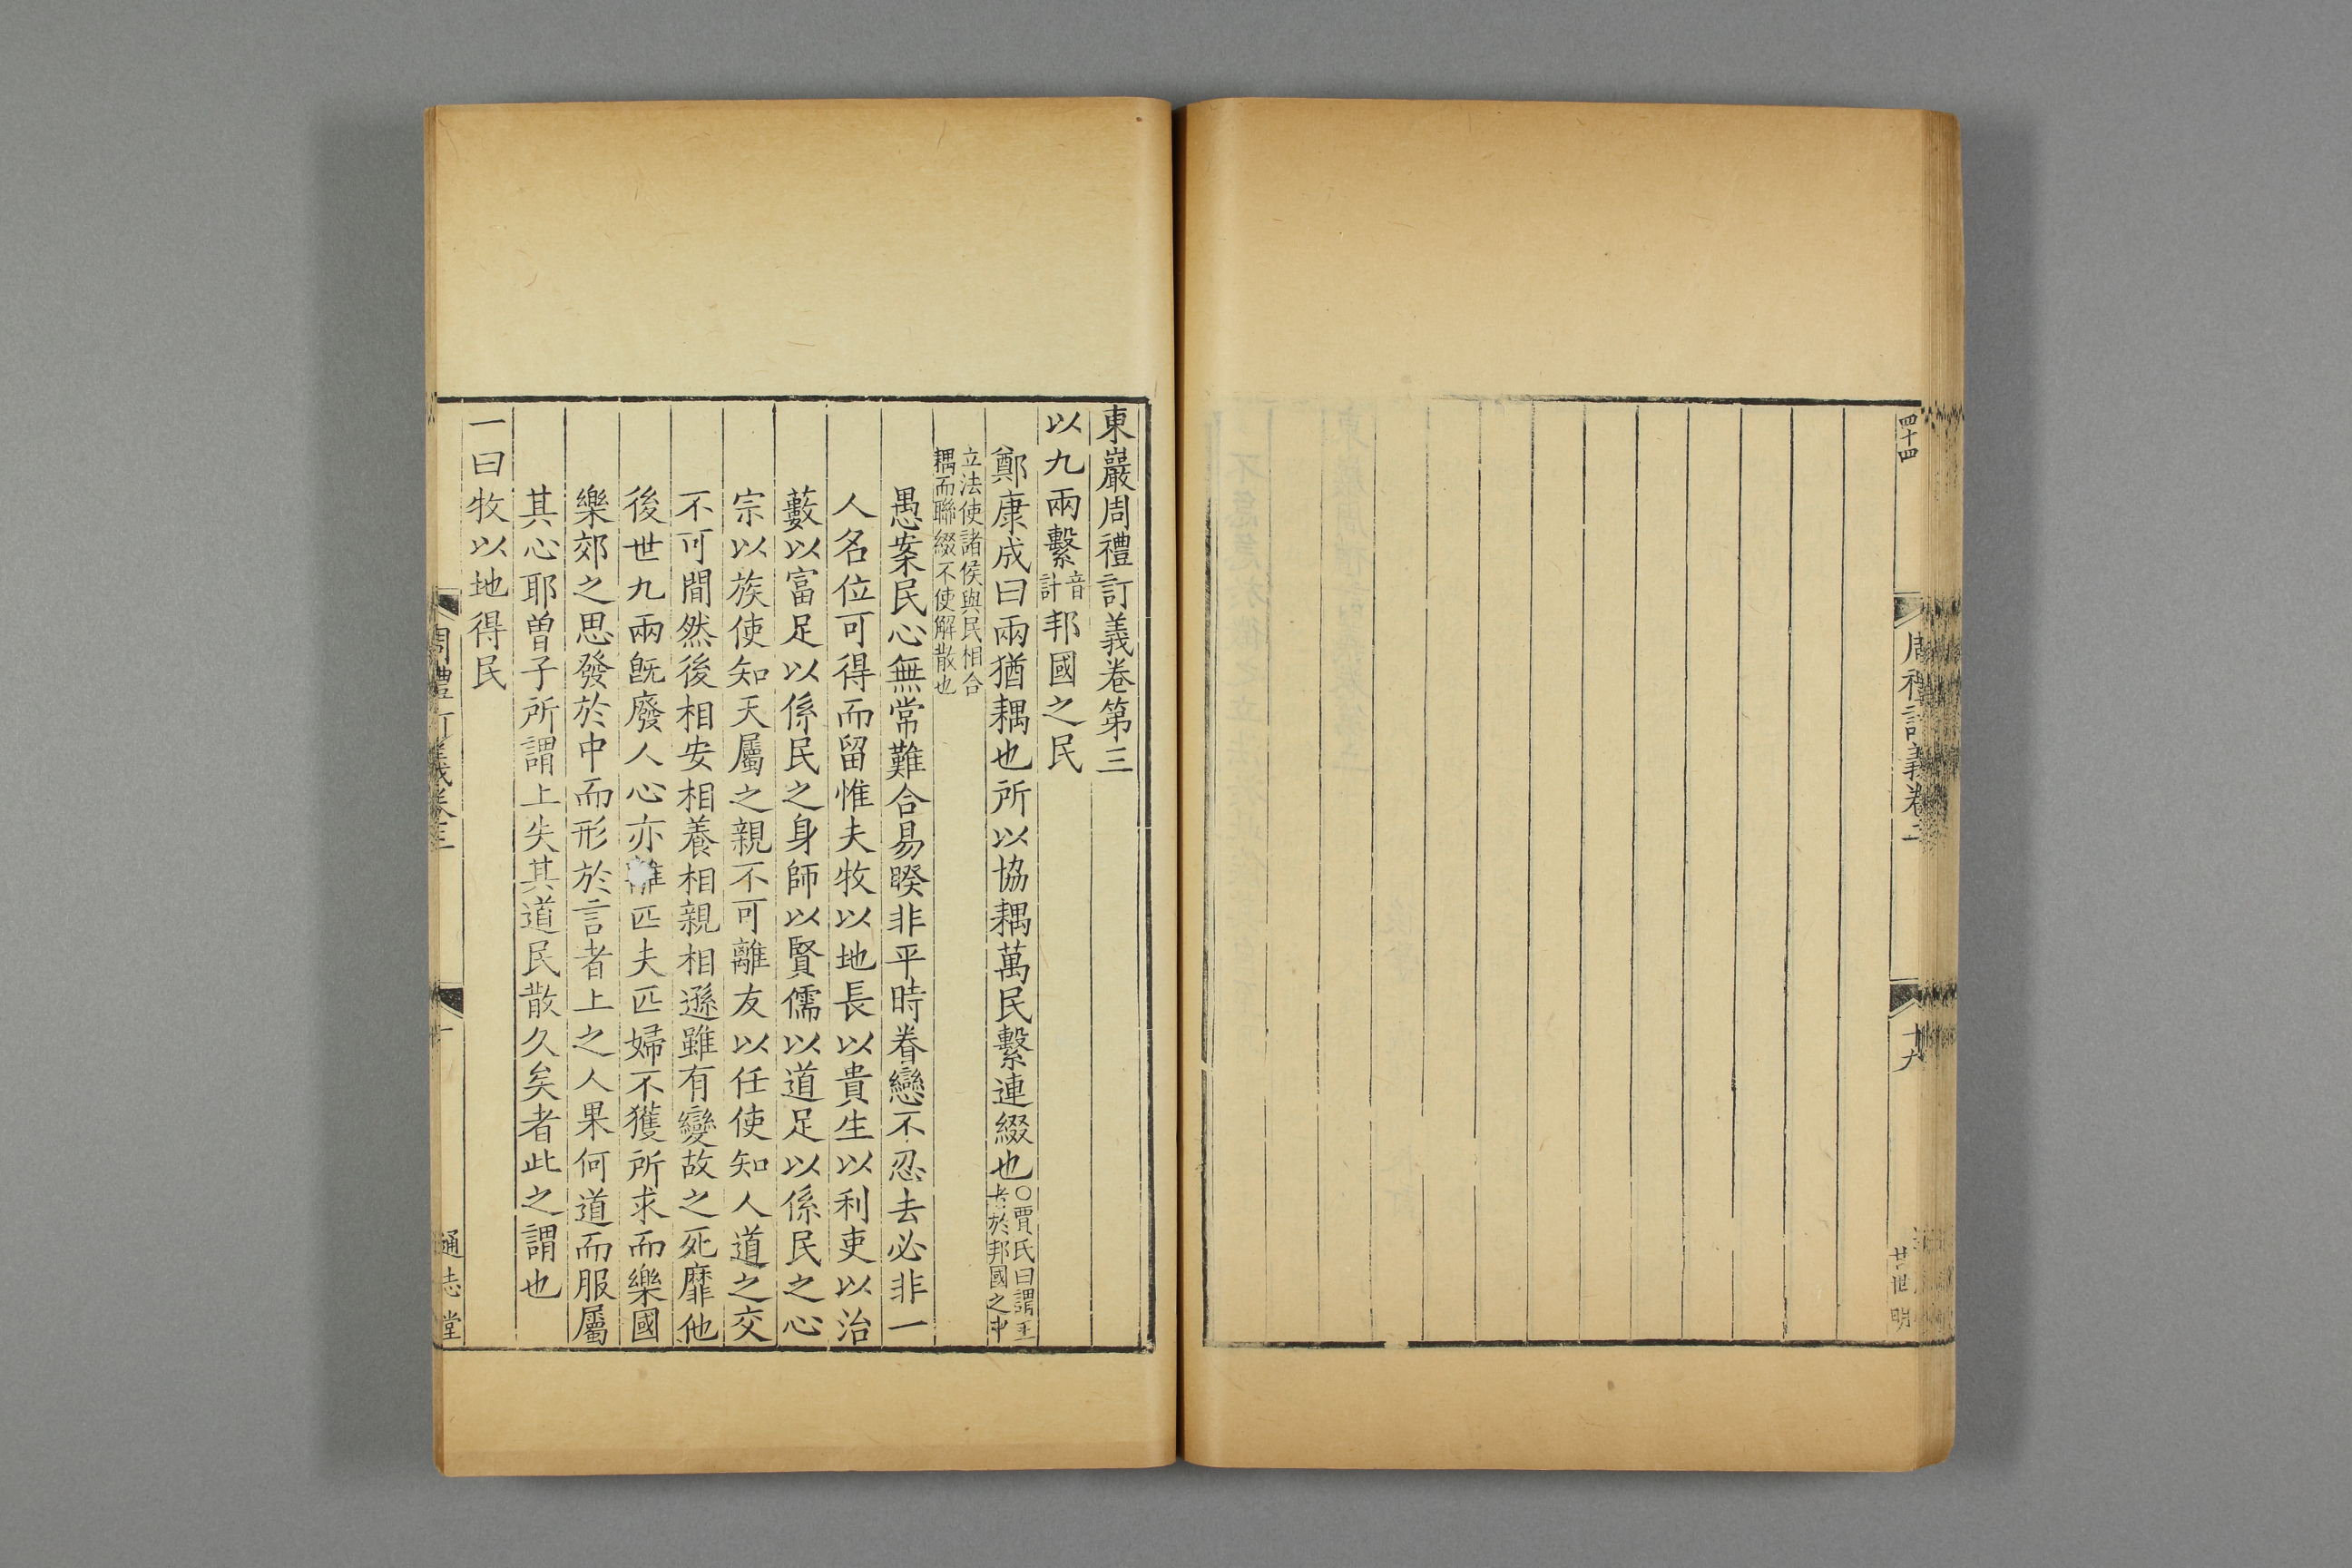 四十四
周禮訂義卷二
十九
甘世明
東巖周禮訂義卷第三
以九兩繫音計邦國之民
鄭康成曰兩猶耦也所以協耦萬民繫連綴也○賈氏曰謂王者於邦國之中
立法使諸侯與民相合耦而聯綴不使解散也
愚案民心無常難合易睽非平時眷戀不忍去必非一
人名位可得而留惟夫牧以地長以貴主以利吏以治
藪以富足以係民之身師以賢儒以道足以係民之心
宗以族使知天屬之親不可離友以任使知人道之交
不可間然後相安相養相親相遜雖有變故之死靡他
後世九兩旣廢人心亦離匹夫匹婦不獲所求而樂國
樂郊之思發於中而形於言者上之人果何道而服屬
其心耶曾子所謂上失其道民散久矣者此之謂也
一曰牧以地得民
周禮訂義卷三
通志堂